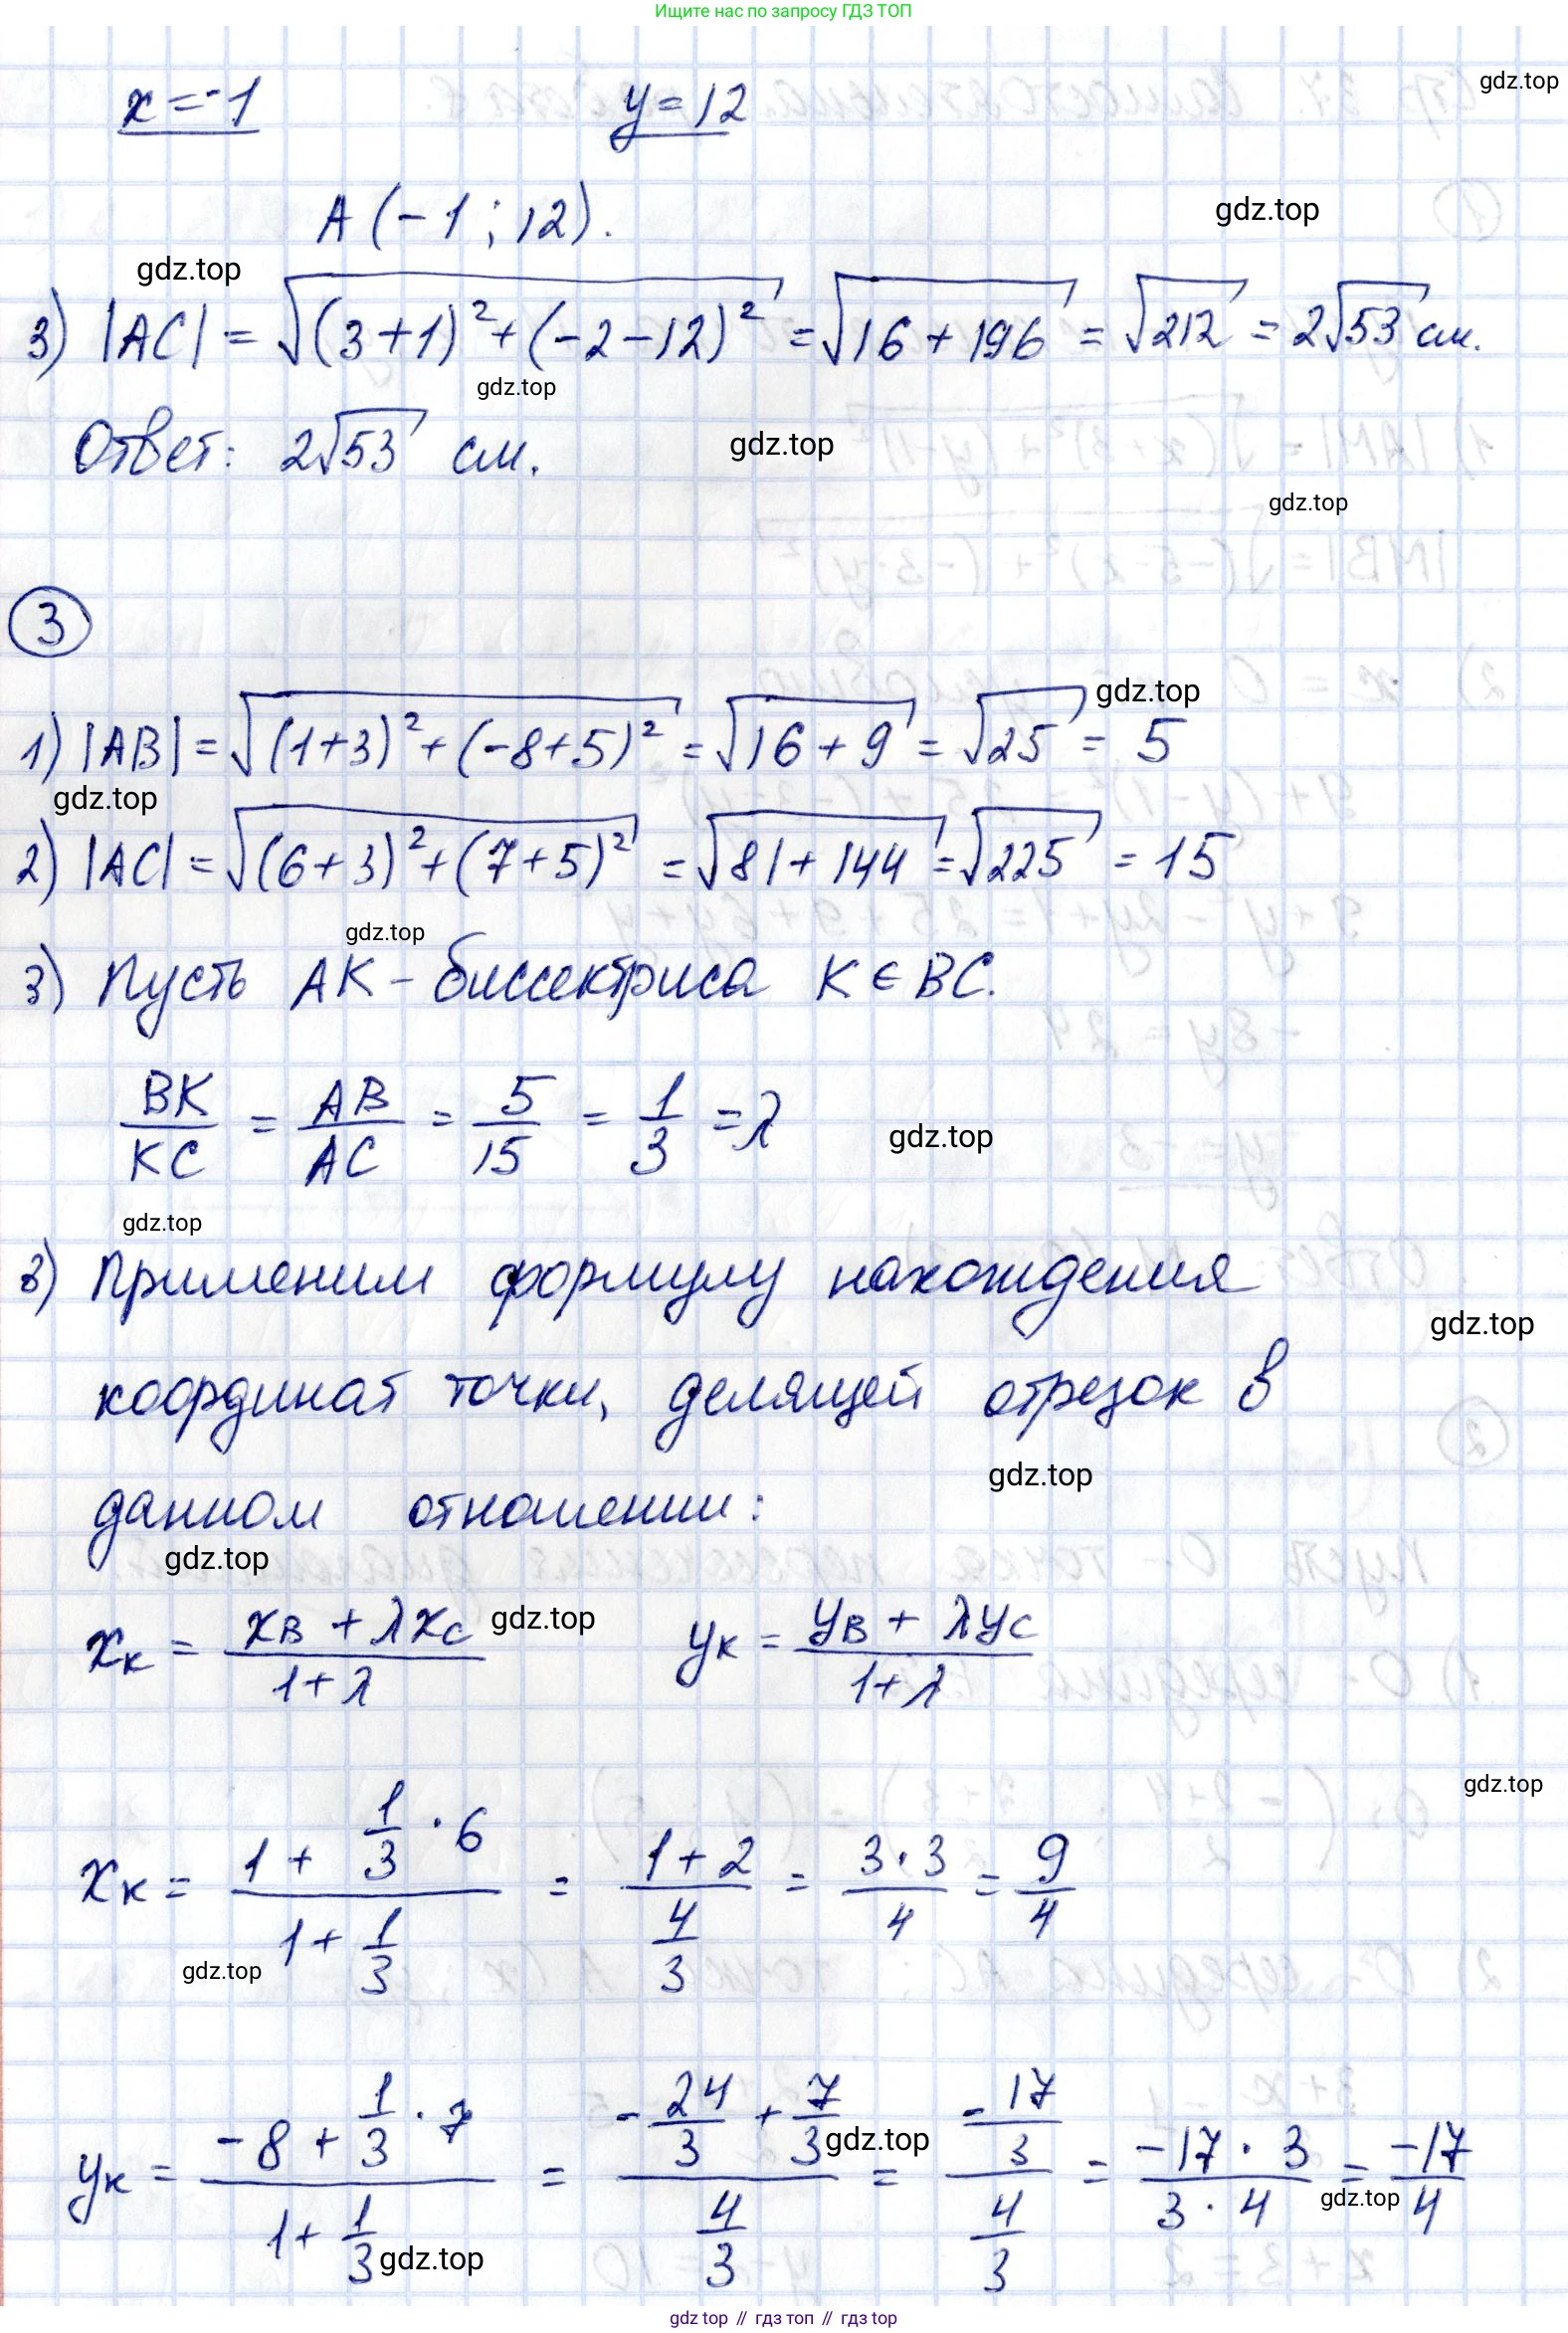 Ищите нас по запросу ГДЗ ТОП
x = -1 y = 12 gdz.top
A (-1 ; 12). gdz.top
gdz.top
3) |AC| = √((3+1)² + (-2-12)²) = √(16 + 196) = √212 = 2√53 см.
gdz.top
Ответ: 2√53 см. gdz.top
gdz.top
3
gdz.top
1) |AB| = √((1+3)² + (-8+5)²) = √(16 + 9) = √25 = 5
gdz.top
2) |AC| = √((6+3)² + (7+5)²) = √(81 + 144) = √225 = 15
gdz.top
3) Пусть AK - биссектриса K ∈ BC.
BK/KC = AB/AC = 5/15 = 1/3 = λ gdz.top
gdz.top
3) Применим формулу нахождения
gdz.top
координат точки, делящей отрезок в
gdz.top
данном отношении:
gdz.top
xк = (xB + λxC)/(1+λ) gdz.top yк = (yB + λyC)/(1+λ)
gdz.top
xк = (1 + 1/3 · 6)/(1 + 1/3) = (1+2)/(4/3) = (3·3)/4 = 9/4
gdz.top
yк = (-8 + 1/3 · 7)/(1 + 1/3) = (-24/3 + 7/3)/(4/3) = (-17/3)/(4/3) = (-17 · 3)/(3 · 4) = -17/4
gdz.top
gdz.top
gdz.top
gdz top // гдз топ // гдз top